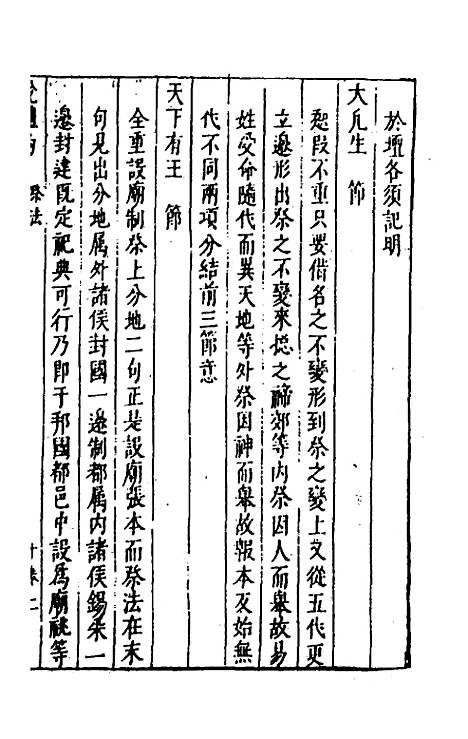 於壇各須記明
大凡生　節
怱段不重只要借名之不變形到祭之變上文從五代更
立邉形出祭之不變來揔之禘郊等内祭因人而舉故易
姓受命隨代而異天地等外祭因神而舉故報本反始無
代不同兩項分結前三節意
天下有王　節
全重設廟制祭上分地二句正是設廟張本而祭法在末
句見出分地属外諸侯封國一邉制都属内諸侯錫采一
邉封建既定祀典可行乃即于邦國都邑中設爲廟祧等
祭法
卷二